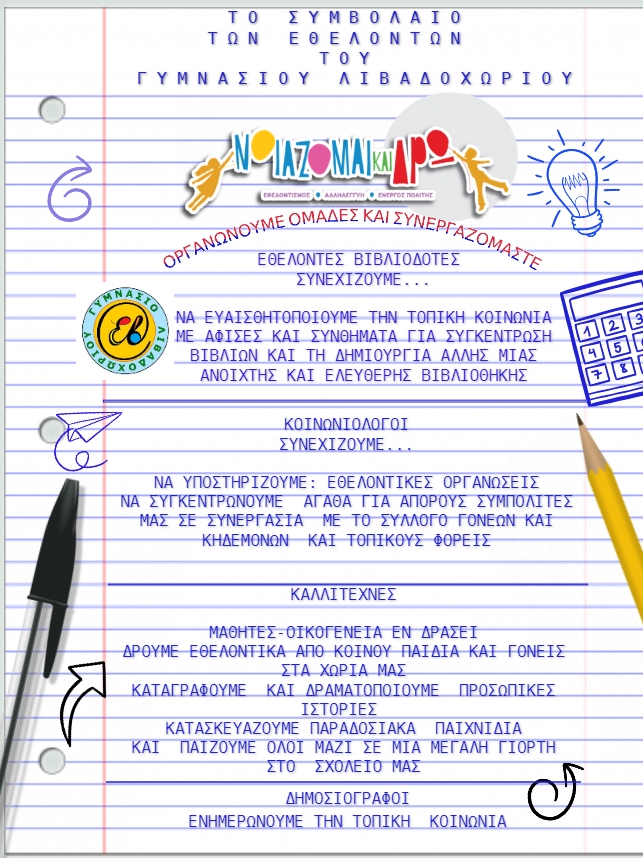 ΤΟ ΣΥΜΒΟΛΑΙΟ
ΤΩΝ ΕΘΕΛΟΝΤΩΝ
ΤΟΥ
ΓΥΜΝΑΣΙΟΥ ΛΙΒΑΔΟΧΩΡΙΟΥ
ΝΟΙΑΖΟΜΑΙ ΚΑΙ ΔΡΩ
ΕΘΕΛΟΝΤΙΣΜΟΣ • ΑΛΛΗΛΕΓΓΥΗ • ΕΝΕΡΓΟΣ ΠΟΛΙΤΗΣ
ΟΡΓΑΝΩΝΟΥΜΕ ΟΜΑΔΕΣ ΚΑΙ ΣΥΝΕΡΓΑΖΟΜΑΣΤΕ
ΕΘΕΛΟΝΤΕΣ ΒΙΒΛΙΟΔΟΤΕΣ
ΣΥΝΕΧΙΖΟΥΜΕ...
ΓΥΜΝΑΣΙΟ
ΛΙΒΑΔΟΧΩΡΙΟΥ
ΝΑ ΕΥΑΙΣΘΗΤΟΠΟΙΟΥΜΕ ΤΗΝ ΤΟΠΙΚΗ ΚΟΙΝΩΝΙΑ
ΜΕ ΑΦΙΣΕΣ ΚΑΙ ΣΥΝΘΗΜΑΤΑ ΓΙΑ ΣΥΓΚΕΝΤΡΩΣΗ
ΒΙΒΛΙΩΝ ΚΑΙ ΤΗ ΔΗΜΙΟΥΡΓΙΑ ΑΛΛΗΣ ΜΙΑΣ
ΑΝΟΙΧΤΗΣ ΚΑΙ ΕΛΕΥΘΕΡΗΣ ΒΙΒΛΙΟΘΗΚΗΣ
1 2 3
4 5
7 8
ΚΟΙΝΩΝΙΟΛΟΓΟΙ
ΣΥΝΕΧΙΖΟΥΜΕ...
ΝΑ ΥΠΟΣΤΗΡΙΖΟΥΜΕ: ΕΘΕΛΟΝΤΙΚΕΣ ΟΡΓΑΝΩΣΕΙΣ
ΝΑ ΣΥΓΚΕΝΤΡΩΝΟΥΜΕ ΑΓΑΘΑ ΓΙΑ ΑΠΟΡΟΥΣ ΣΥΜΠΟΛΙΤΕΣ
ΜΑΣ ΣΕ ΣΥΝΕΡΓΑΣΙΑ ΜΕ ΤΟ ΣΥΛΛΟΓΟ ΓΟΝΕΩΝ ΚΑΙ
ΚΗΔΕΜΟΝΩΝ ΚΑΙ ΤΟΠΙΚΟΥΣ ΦΟΡΕΙΣ
ΚΑΛΛΙΤΕΧΝΕΣ
ΜΑΘΗΤΕΣ-ΟΙΚΟΓΕΝΕΙΑ ΕΝ ΔΡΑΣΕΙ
ΔΡΟΥΜΕ ΕΘΕΛΟΝΤΙΚΑ ΑΠΟ ΚΟΙΝΟΥ ΠΑΙΔΙΑ ΚΑΙ ΓΟΝΕΙΣ
ΣΤΑ ΧΩΡΙΑ ΜΑΣ
ΚΑΤΑΓΡΑΦΟΥΜΕ ΚΑΙ ΔΡΑΜΑΤΟΠΟΙΟΥΜΕ ΠΡΟΣΩΠΙΚΕΣ
ΙΣΤΟΡΙΕΣ
ΚΑΤΑΣΚΕΥΑΖΟΥΜΕ ΠΑΡΑΔΟΣΙΑΚΑ ΠΑΙΧΝΙΔΙΑ
ΚΑΙ ΠΑΙΖΟΥΜΕ ΟΛΟΙ ΜΑΖΙ ΣΕ ΜΙΑ ΜΕΓΑΛΗ ΓΙΟΡΤΗ
ΣΤΟ ΣΧΟΛΕΙΟ ΜΑΣ
ΔΗΜΟΣΙΟΓΡΑΦΟΙ
ΕΝΗΜΕΡΩΝΟΥΜΕ ΤΗΝ ΤΟΠΙΚΗ ΚΟΙΝΩΝΙΑ